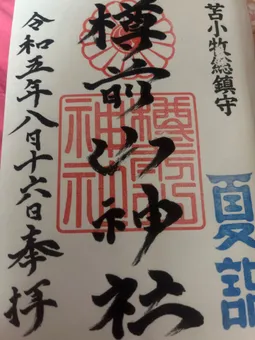 苫小牧総鎮守
夏詣
樽前山神社
令和五年八月十六日奉拝